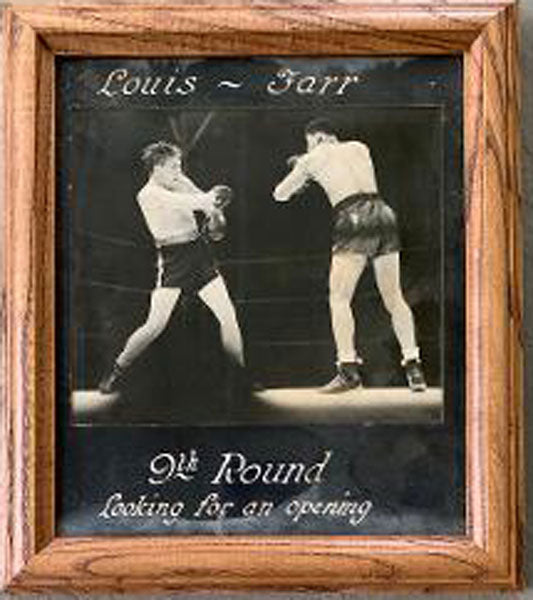 Louis ~ Farr
9th Round
Looking for an opening